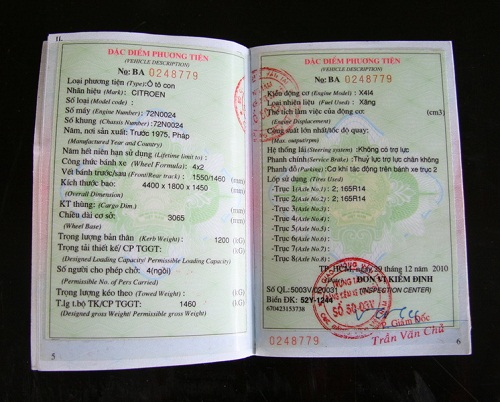 II.
ĐẶC ĐIỂM PHƯƠNG TIỆN
(VEHICLE DESCRIPTION)
Nọ: BA 0248779
Loại phương tiện (Type): Ô tô con
Nhãn hiệu (Mark): CITROEN
Số loại (Model code) :
Số máy (Engine Number) : 72N0024
Số khung (Chassis Number): 72N0024
Năm, nơi sản xuất: Trước 1975, Pháp
(Manufactured Year and Country)
Năm hết niên hạn sử dụng (Lifetime limit to) :
Công thức bánh xe (Wheel Formula) : 4x2
Vết bánh trước/sau (Front/Rear track) : 1550/1460 (mm)
Kích thước bao: 4400 x 1800 x 1450
(Overall Dimension) (mm)
KT thùng: (Cargo Dim.)
Chiều dài cơ sở: 3065 (mm)
(Wheel Base)
Trọng lượng bản thân (Kerb Weight) : 1200 (kG)
Trọng tải thiết kế/ CP TGGT: (kG)
(Designed Loading Capacity/ Permissible Loading Capacity)
Số người cho phép chở: 4(ngồi)
(Permissible No. of Pers Carried)
Trọng lượng kéo theo (Towed Weight) : (kG)
T.lg t.bộ TK/CP TGGT: 1460 (kG)
(Designed gross Weight/ Permissible gross Weight)
5
ĐẶC ĐIỂM PHƯƠNG TIỆN
(VEHICLE DESCRIPTION)
Nọ: BA 0248779
Kiểu động cơ (Engine Model) : X4I4
Loại nhiên liệu (Fuel Used) : Xăng
Thể tích làm việc của động cơ (cm3)
(Engine Displacement)
Công suất lớn nhất/tốc độ quay:
(Max. output/rpm)
Hệ thống lái (Steering system) :Không có trợ lực
Phanh chính (Service Brake) : Thuỷ lực trợ lực chân không
Phanh đỗ (Parking) : Cơ khí tác động trên bánh xe trục 2
Lốp sử dụng (Tires Used)
-Trục 1(Axle No.1) : 2; 165R14
-Trục 2(Axle No.2) : 2; 165R14
-Trục 3(Axle No.3) :
-Trục 4(Axle No.4) :
-Trục 5(Axle No.5) :
-Trục 6(Axle No.6) :
-Trục 7(Axle No.7) :
-Trục 8(Axle No.8) :
TP.HCM, ngày 29 tháng 12 năm 2010
ĐƠN VỊ KIỂM ĐỊNH
Số QL: 5003V-020031 (INSPECTION CENTER)
Biển ĐK: 52Y-1244
670423153738
SỐ 50-03V
Giám Đốc
Trần Văn Chú
0248779
6